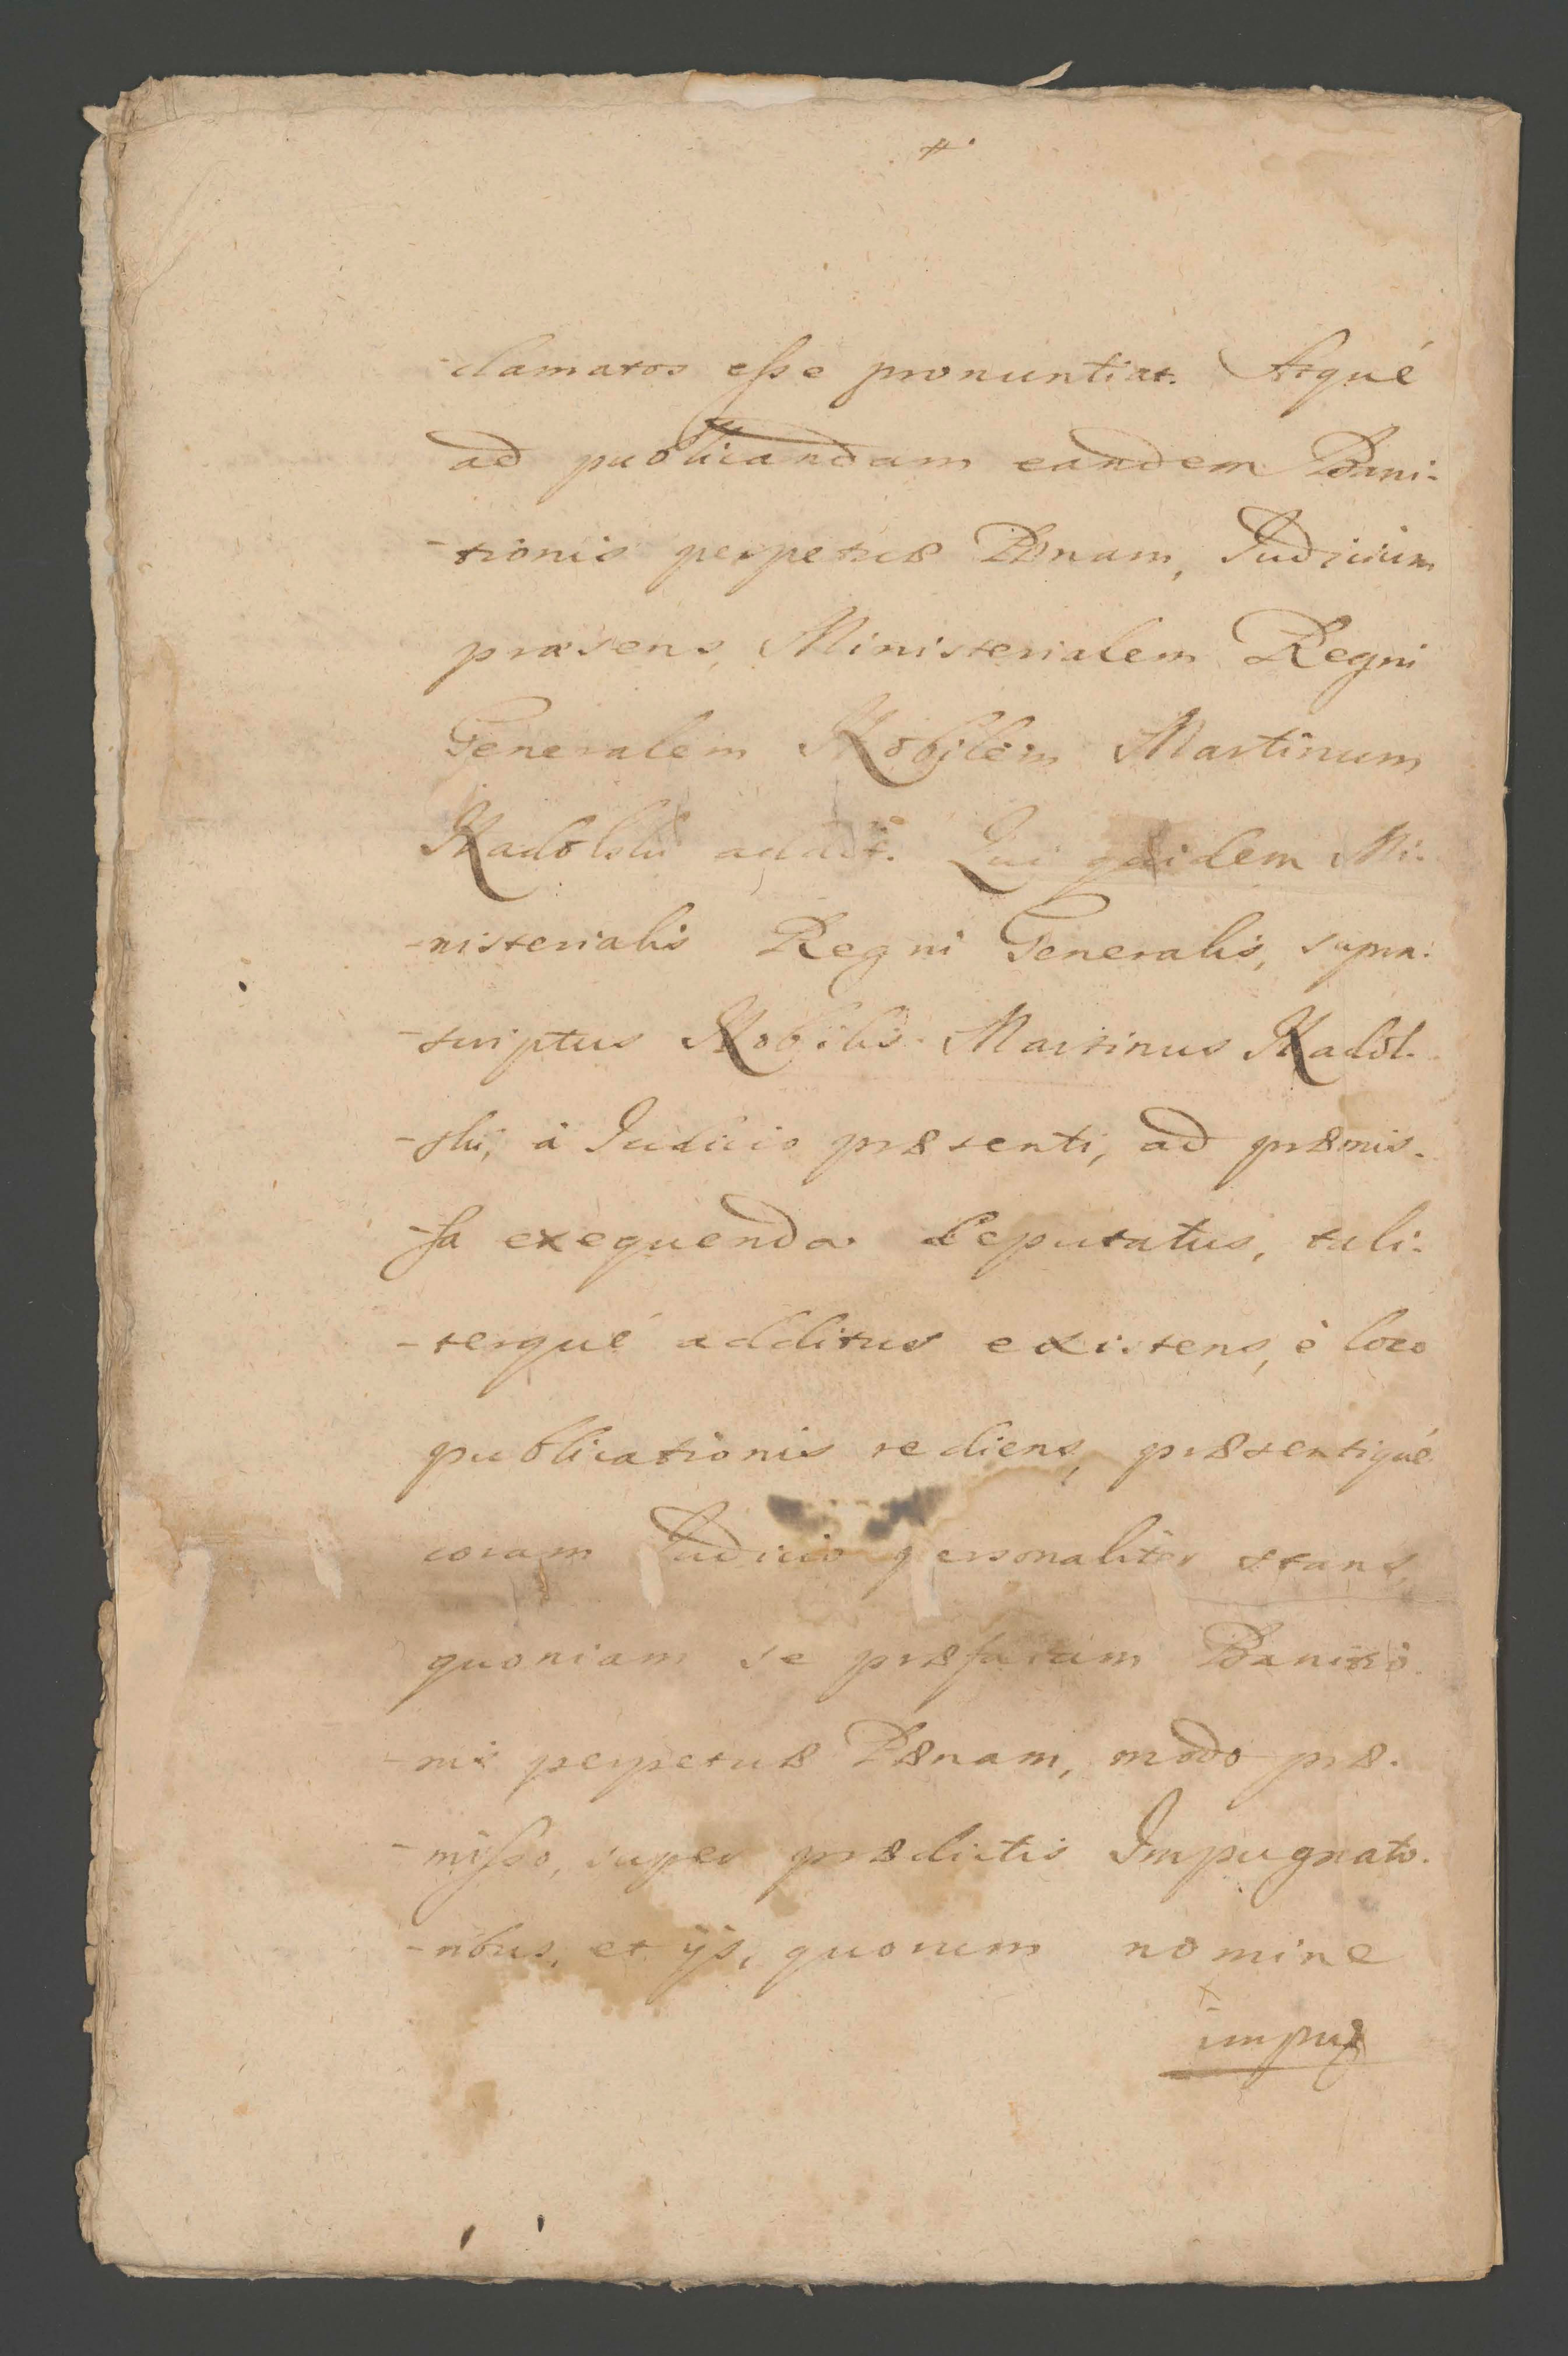 -clamatos esse pronuntiat. Atquè
ad publicandam eandem Bani-
-tionis perpetuæ Pœnam, Judicium
præsens, Ministerialem Regni
Generalem Nobilem Martinum
Nadolski addit. Qui quidem Mi-
-nisterialis Regni Generalis, supra-
-scriptus Nobilis Martinus Nadol-
-ski, à Judicio præsenti, ad præmis-
-sa exequenda deputatus, tali-
-terquè additus existens, è loco
publicationis rediens, præsentiquè
coram Judicio personaliter stans,
quoniam se præfatam Banitio-
-nis perpetuæ Pœnam, modo præ-
-misso, super prædictis Impugnato-
-ribus, et ijs, quorum nomine
impug